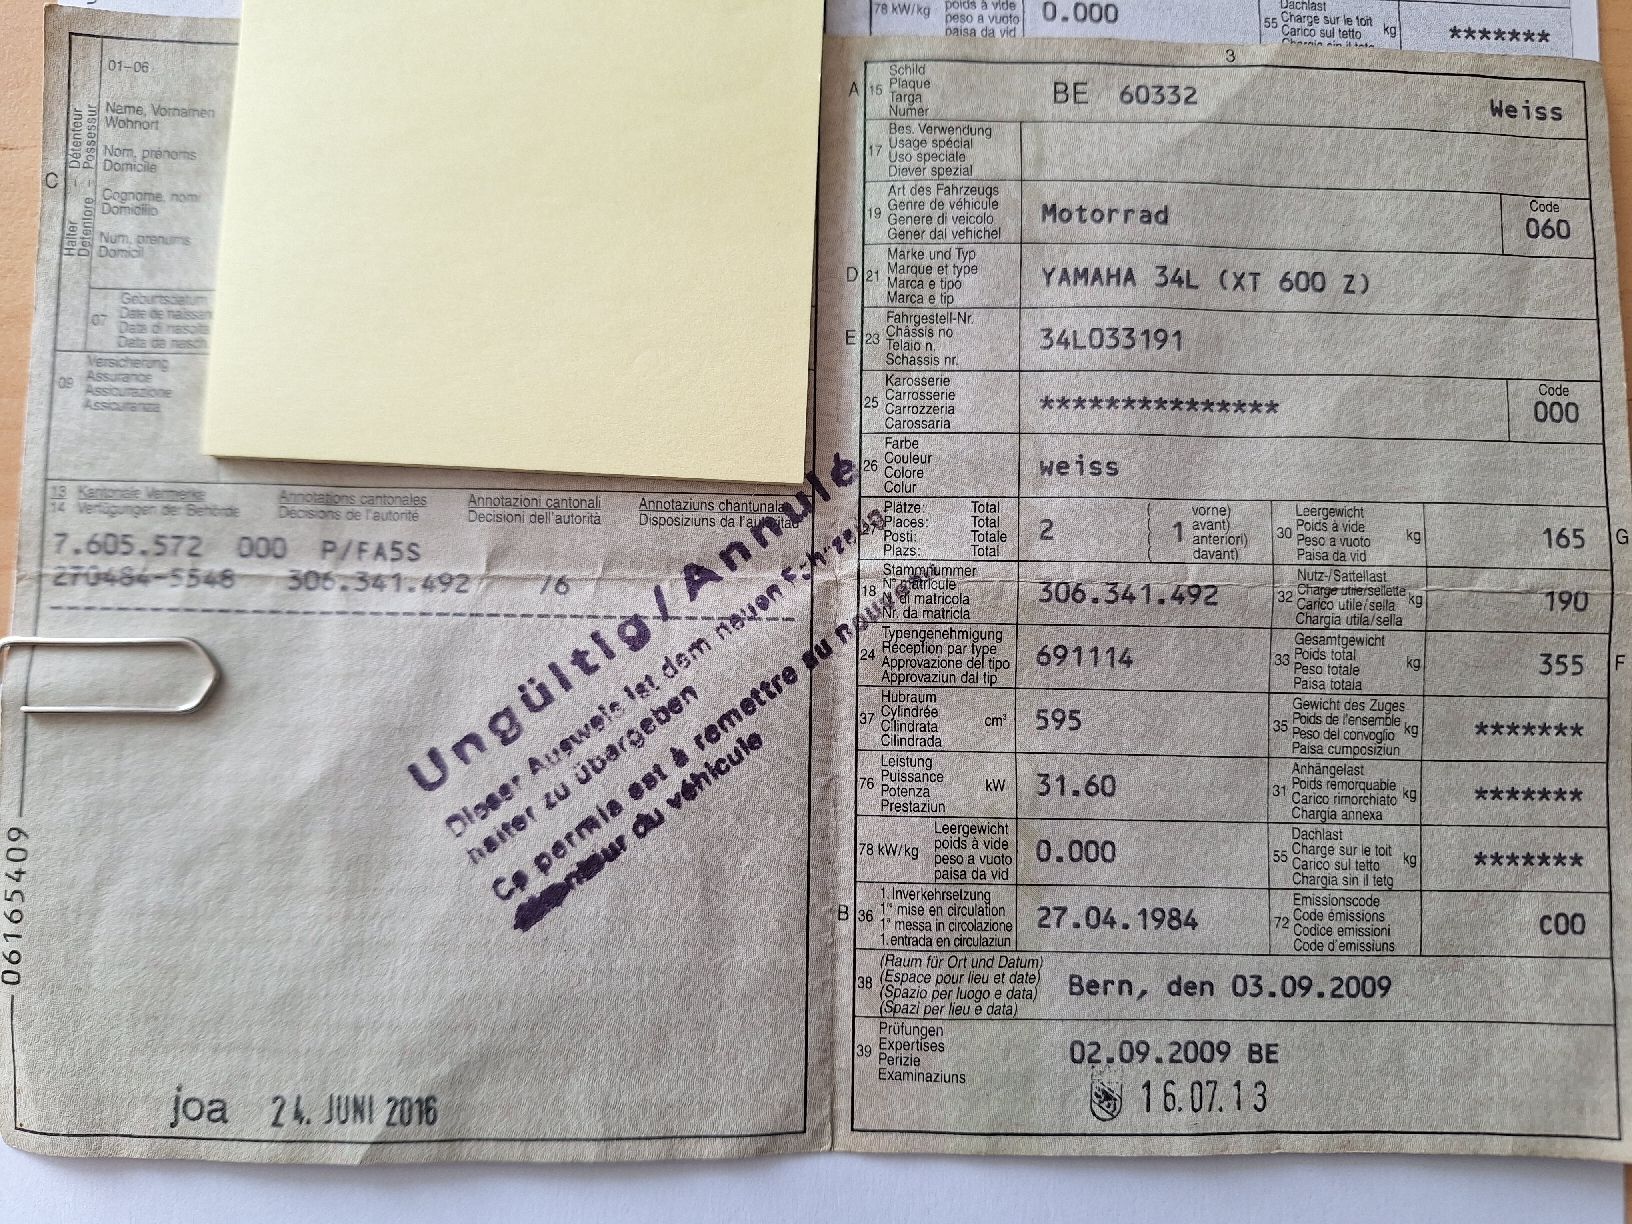 78 kW/kg
poids à vide
peso a vuoto
paisa da vid
0.000
55
Dachlast
Charge sur le toit
Carico sul tetto
kg
*******
01-06
C
Halter - Détenteur
Detentore - Possessur
Name, Vornamen
Wohnort
Nom, prénoms
Domicile
Cognome, nomi
Domicilio
Num, prenums
Domicil
07
Geburtsdatum
Date de naissan
Data di nascita
Data da nasch
09
Versicherung
Assurance
Assicurazione
Assicuranza
13 Kantonale Vermerke Annotations cantonales Annotazioni cantonali Annotaziuns chantunala
14 Verfügungen der Behörde Décisions de l'autorité Decisioni dell'autorità Disposiziuns da l'autoritad
7.605.572 000 P/FA5S
270484-5548 306.341.492 /6
Ungültig / Annulé
Dieser Ausweis ist dem neuen Fahrzeug
halter zu übergeben
Ce permis est à remettre au nouveau
du véhicule
06165409
joa 24. JUNI 2016
3
A 15
Schild
Plaque
Targa
Numer
BE 60332 Weiss
17
Bes. Verwendung
Usage spécial
Uso speciale
Diever spezial
19
Art des Fahrzeugs
Genre de véhicule
Genere di veicolo
Gener dal vehichel
Motorrad
Code
060
D 21
Marke und Typ
Marque et type
Marca e tipo
Marca e tip
YAMAHA 34L (XT 600 Z)
E 23
Fahrgestell-Nr.
Châssis no
Telaio n.
Schassis nr.
34L033191
25
Karosserie
Carrosserie
Carrozzeria
Carossaria
***************
Code
000
26
Farbe
Couleur
Colore
Colur
weiss
Plätze: Total
Places: Total
Posti: Totale
Plazs: Total
2
( 1
vorne)
avant)
anteriori)
davant)
30
Leergewicht
Poids à vide
Peso a vuoto
Paisa da vid
kg
165
G
18
Stammnummer
N° matricule
N. di matricola
Nr. da matricla
306.341.492
32
Nutz-/Sattellast
Charge utile/sellette
Carico utile/sella
Chargia utila/sella
kg
190
24
Typengenehmigung
Réception par type
Approvazione del tipo
Approvaziun dal tip
691114
33
Gesamtgewicht
Poids total
Peso totale
Paisa totala
kg
355
F
37
Hubraum
Cylindrée
Cilindrata
Cilindrada
cm³
595
35
Gewicht des Zuges
Poids de l'ensemble
Peso del convoglio
Paisa cumposiziun
kg
*******
76
Leistung
Puissance
Potenza
Prestaziun
kW
31.60
31
Anhängelast
Poids remorquable
Carico rimorchiato
Chargia annexa
kg
*******
78 kW/kg
Leergewicht
poids à vide
peso a vuoto
paisa da vid
0.000
55
Dachlast
Charge sur le toit
Carico sul tetto
Chargia sin il tetg
kg
*******
B 36
1. Inverkehrsetzung
1re mise en circulation
1a messa in circolazione
1. entrada en circulaziun
27.04.1984
72
Emissionscode
Code émissions
Codice emissioni
Code d'emissiuns
C00
38
(Raum für Ort und Datum)
(Espace pour lieu et date)
(Spazio per luogo e data)
(Spazi per lieu e data)
Bern, den 03.09.2009
39
Prüfungen
Expertises
Perizie
Examinaziuns
02.09.2009 BE
16.07.13